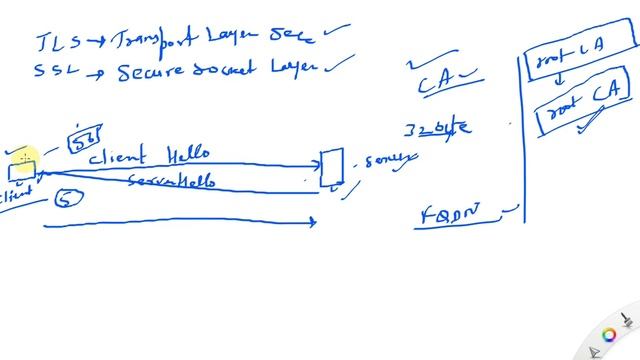 TLS → Transport Layer Sec
SSL → Secure Socket Layer
CA
root CA
root CA
32 byte
Client Hello
Server
ServerHello
Client
5
FQDN